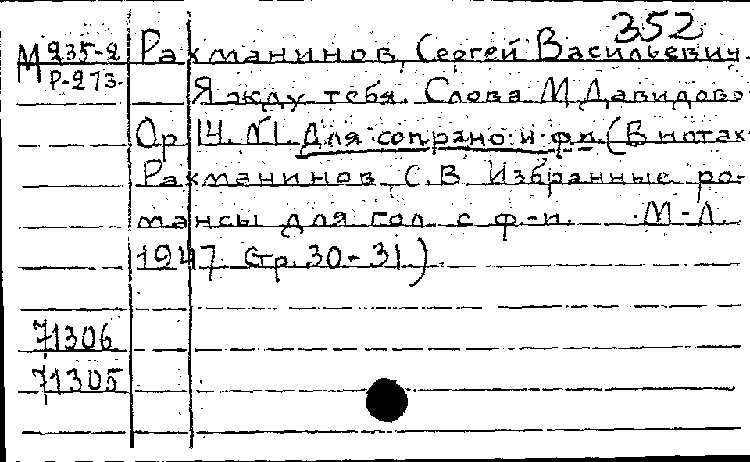 352
М 235-2 Рахманинов, Сергей Васильевич.
Р-273. Я жду тебя. Слова М. Давидово
Ор. 14. №1. Для сопрано и ф-п. (В нотах
Рахманинов С.В. Избранные ро-
мансы для гол. с ф-п. М.-Л.
1947. Стр. 30-31.)
71306
71305